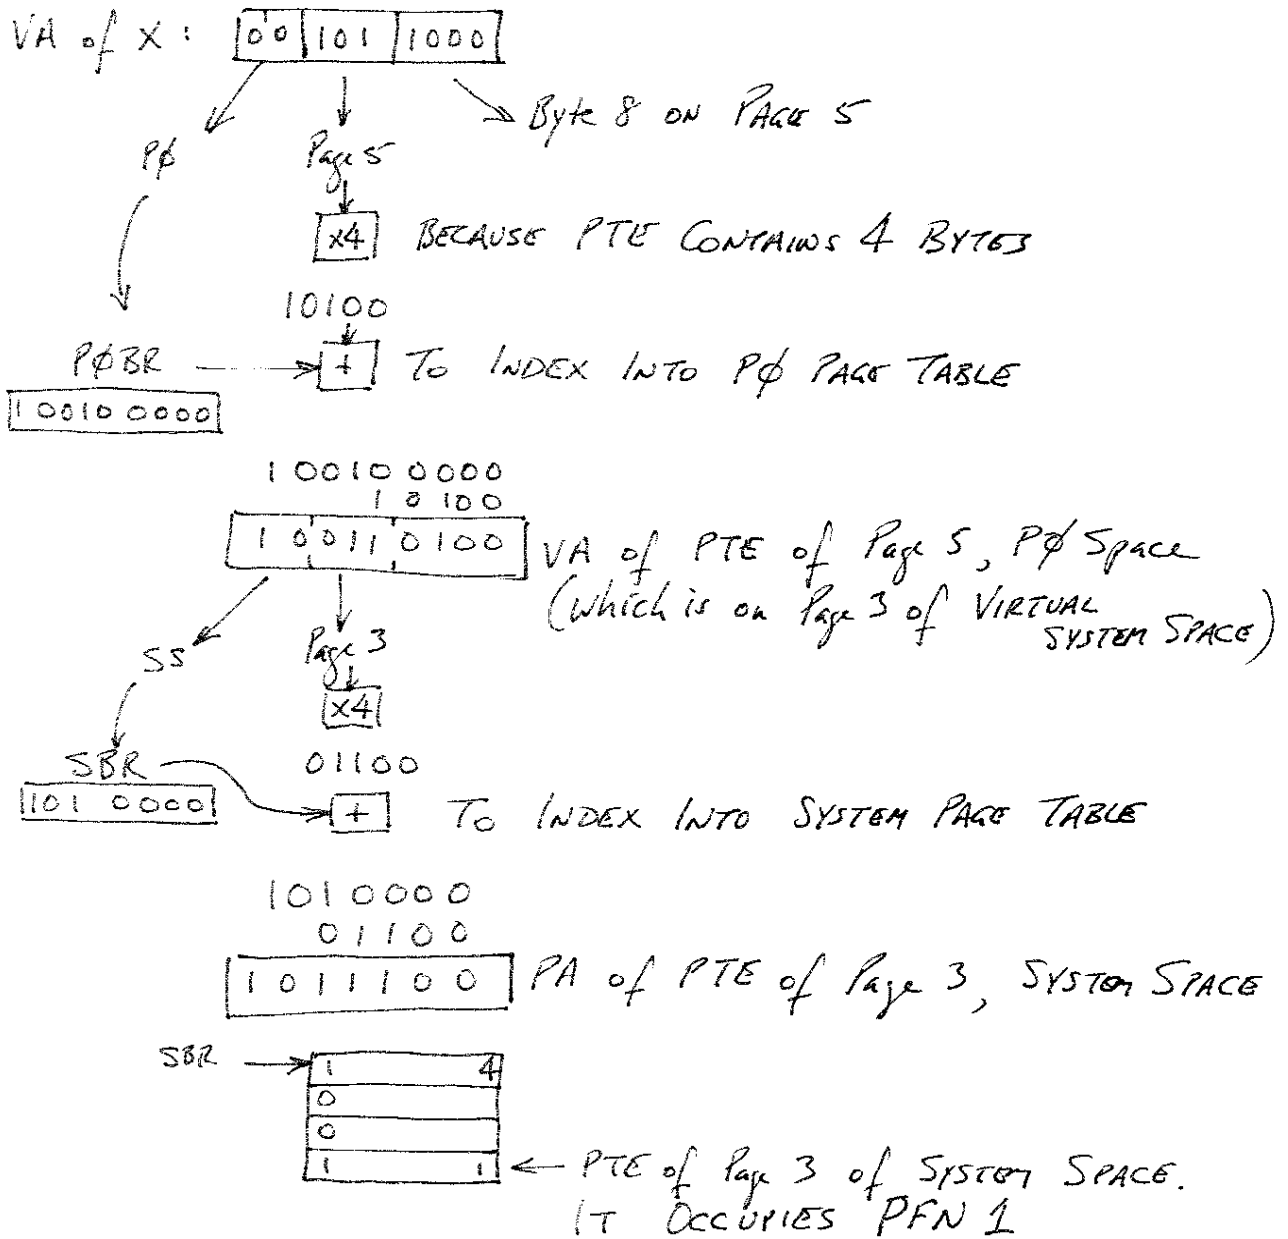 VA of X: 00 101 1000
Byte 8 ON PAGE 5
PØ Page 5
x4 BECAUSE PTE CONTAINS 4 BYTES
10100
PØBR + TO INDEX INTO PØ PAGE TABLE
1 0010 0000
1 0010 0000
1 0100
1 0 011 0100 VA of PTE of Page 5, PØ Space
(which is on Page 3 of VIRTUAL
SYSTEM SPACE)
SS Page 3
x4
SBR 01100
101 0000 + TO INDEX INTO SYSTEM PAGE TABLE
1010000
01100
1011100 PA of PTE of Page 3, SYSTEM SPACE
SBR 1 4
0
0
1 1 PTE of Page 3 of SYSTEM SPACE.
IT OCCUPIES PFN 1